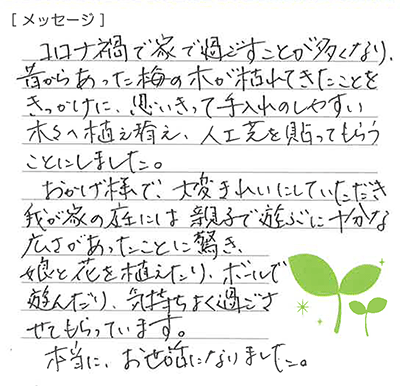 [メッセージ]
コロナ禍で家で過ごすことが多くなり、
昔からあった梅の木が枯れてきたことを
きっかけに、思いきって手入れのしやすい
木々へ植え替え、人工芝を貼ってもらう
ことにしました。
おかげ様で、大変きれいにしていただき
我が家の庭には親子で遊ぶに十分な
広さがあったことに驚き、
娘と花を植えたり、ボールで
遊んだり、気持ちよく過ごさ
せてもらっています。
本当に、お世話になりました。